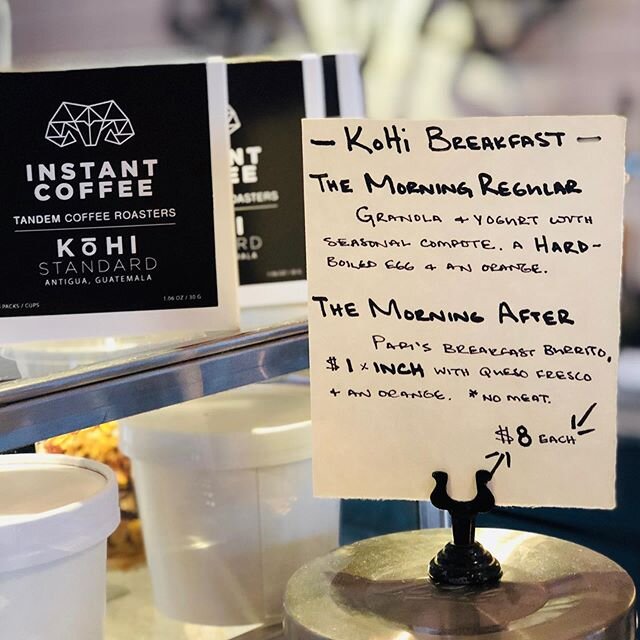 INSTANT
COFFEE
TANDEM COFFEE ROASTERS
KōHI
STANDARD
ANTIGUA, GUATEMALA
PACKS / CUPS
1.06 OZ / 30 G
NT
EE
ROASTERS
HI
RD
- KoHi BREAKFAST -
THE MORNING REGULAR
GRANOLA + YOGURT WITH
SEASONAL COMPOTE. A HARD-
BOILED EGG & AN ORANGE.
THE MORNING AFTER
PAPI'S BREAKFAST BURRITO,
$1 x INCH WITH QUESO FRESCO
+ AN ORANGE. *NO MEAT.
$8 EACH